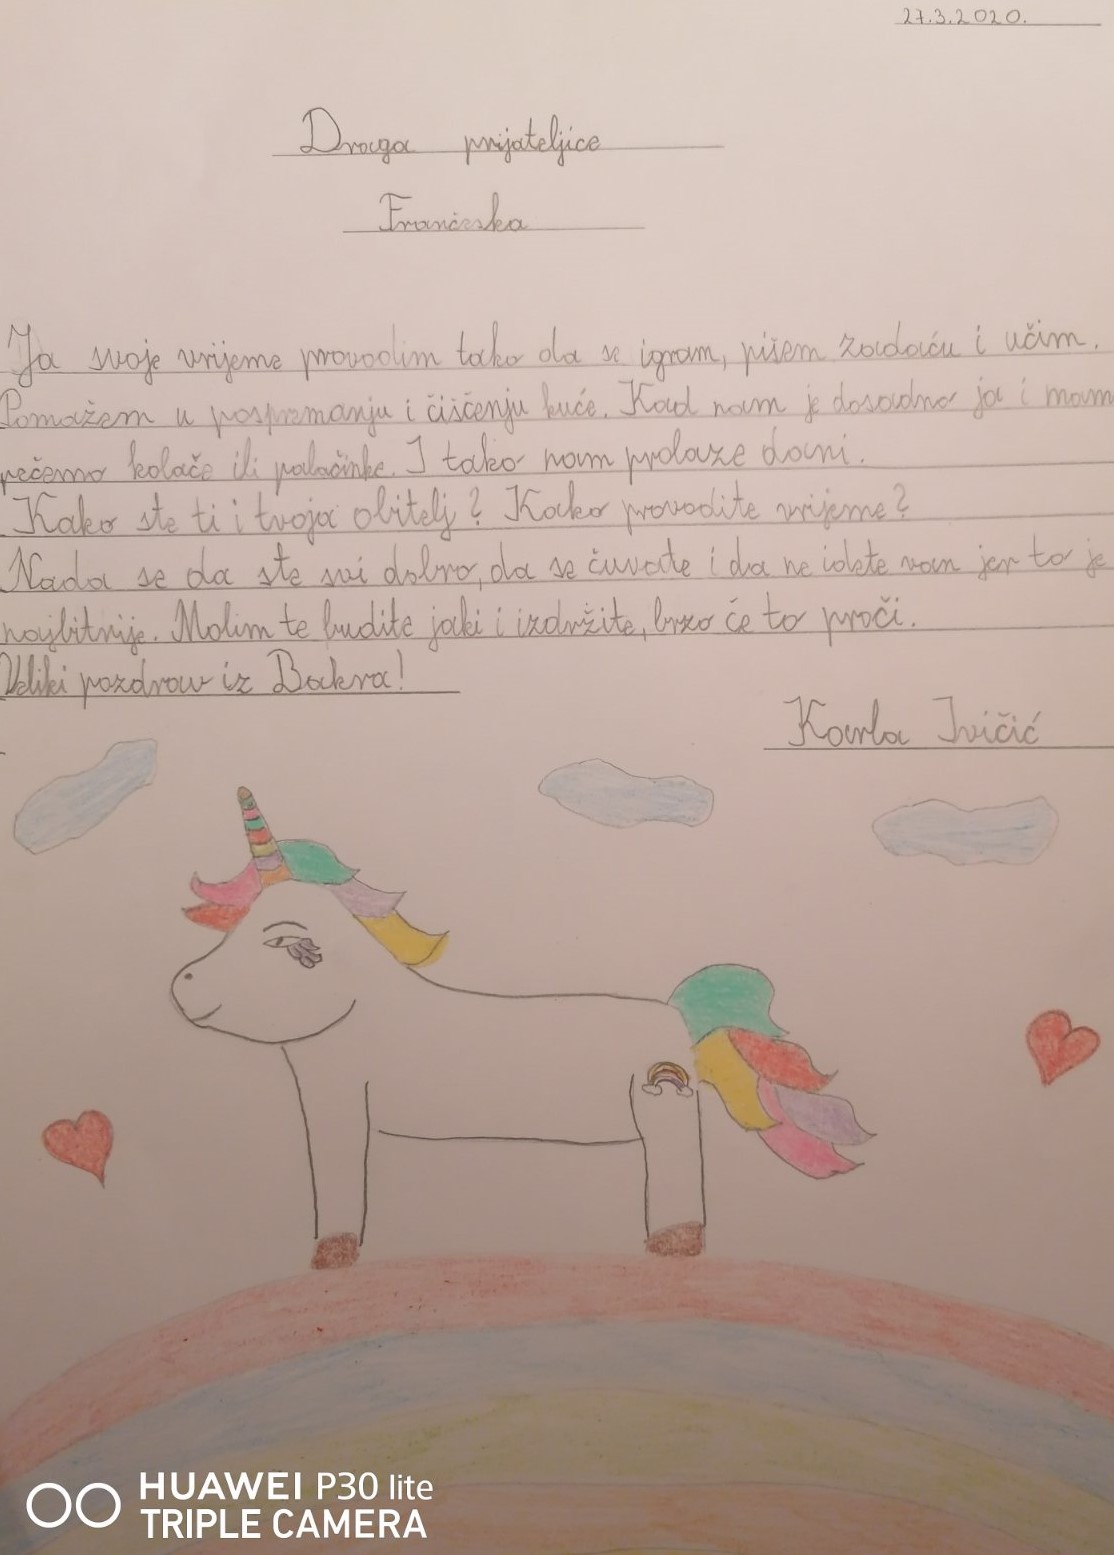 27.3.2020.
Draga prijateljice
Frančeska
Ja svoje vrijeme provodim tako da se igram, pišem zadaću i učim.
Pomažem u pospremanju i čiščenju kuće. Kad nam je dosadno ja i mam
pečemo kolače ili palačinke. I tako nam prolaze dani.
Kako ste ti i tvoja obitelj? Kako provodite vrijeme?
Nada se da ste svi dobro, da se čuvate i da ne idete van jer to je
najbitnije. Molim te budite jaki i izdržite, brzo će to proči.
Veliki pozdrav iz Bakra!
Karla Ivičić
HUAWEI P30 lite
TRIPLE CAMERA